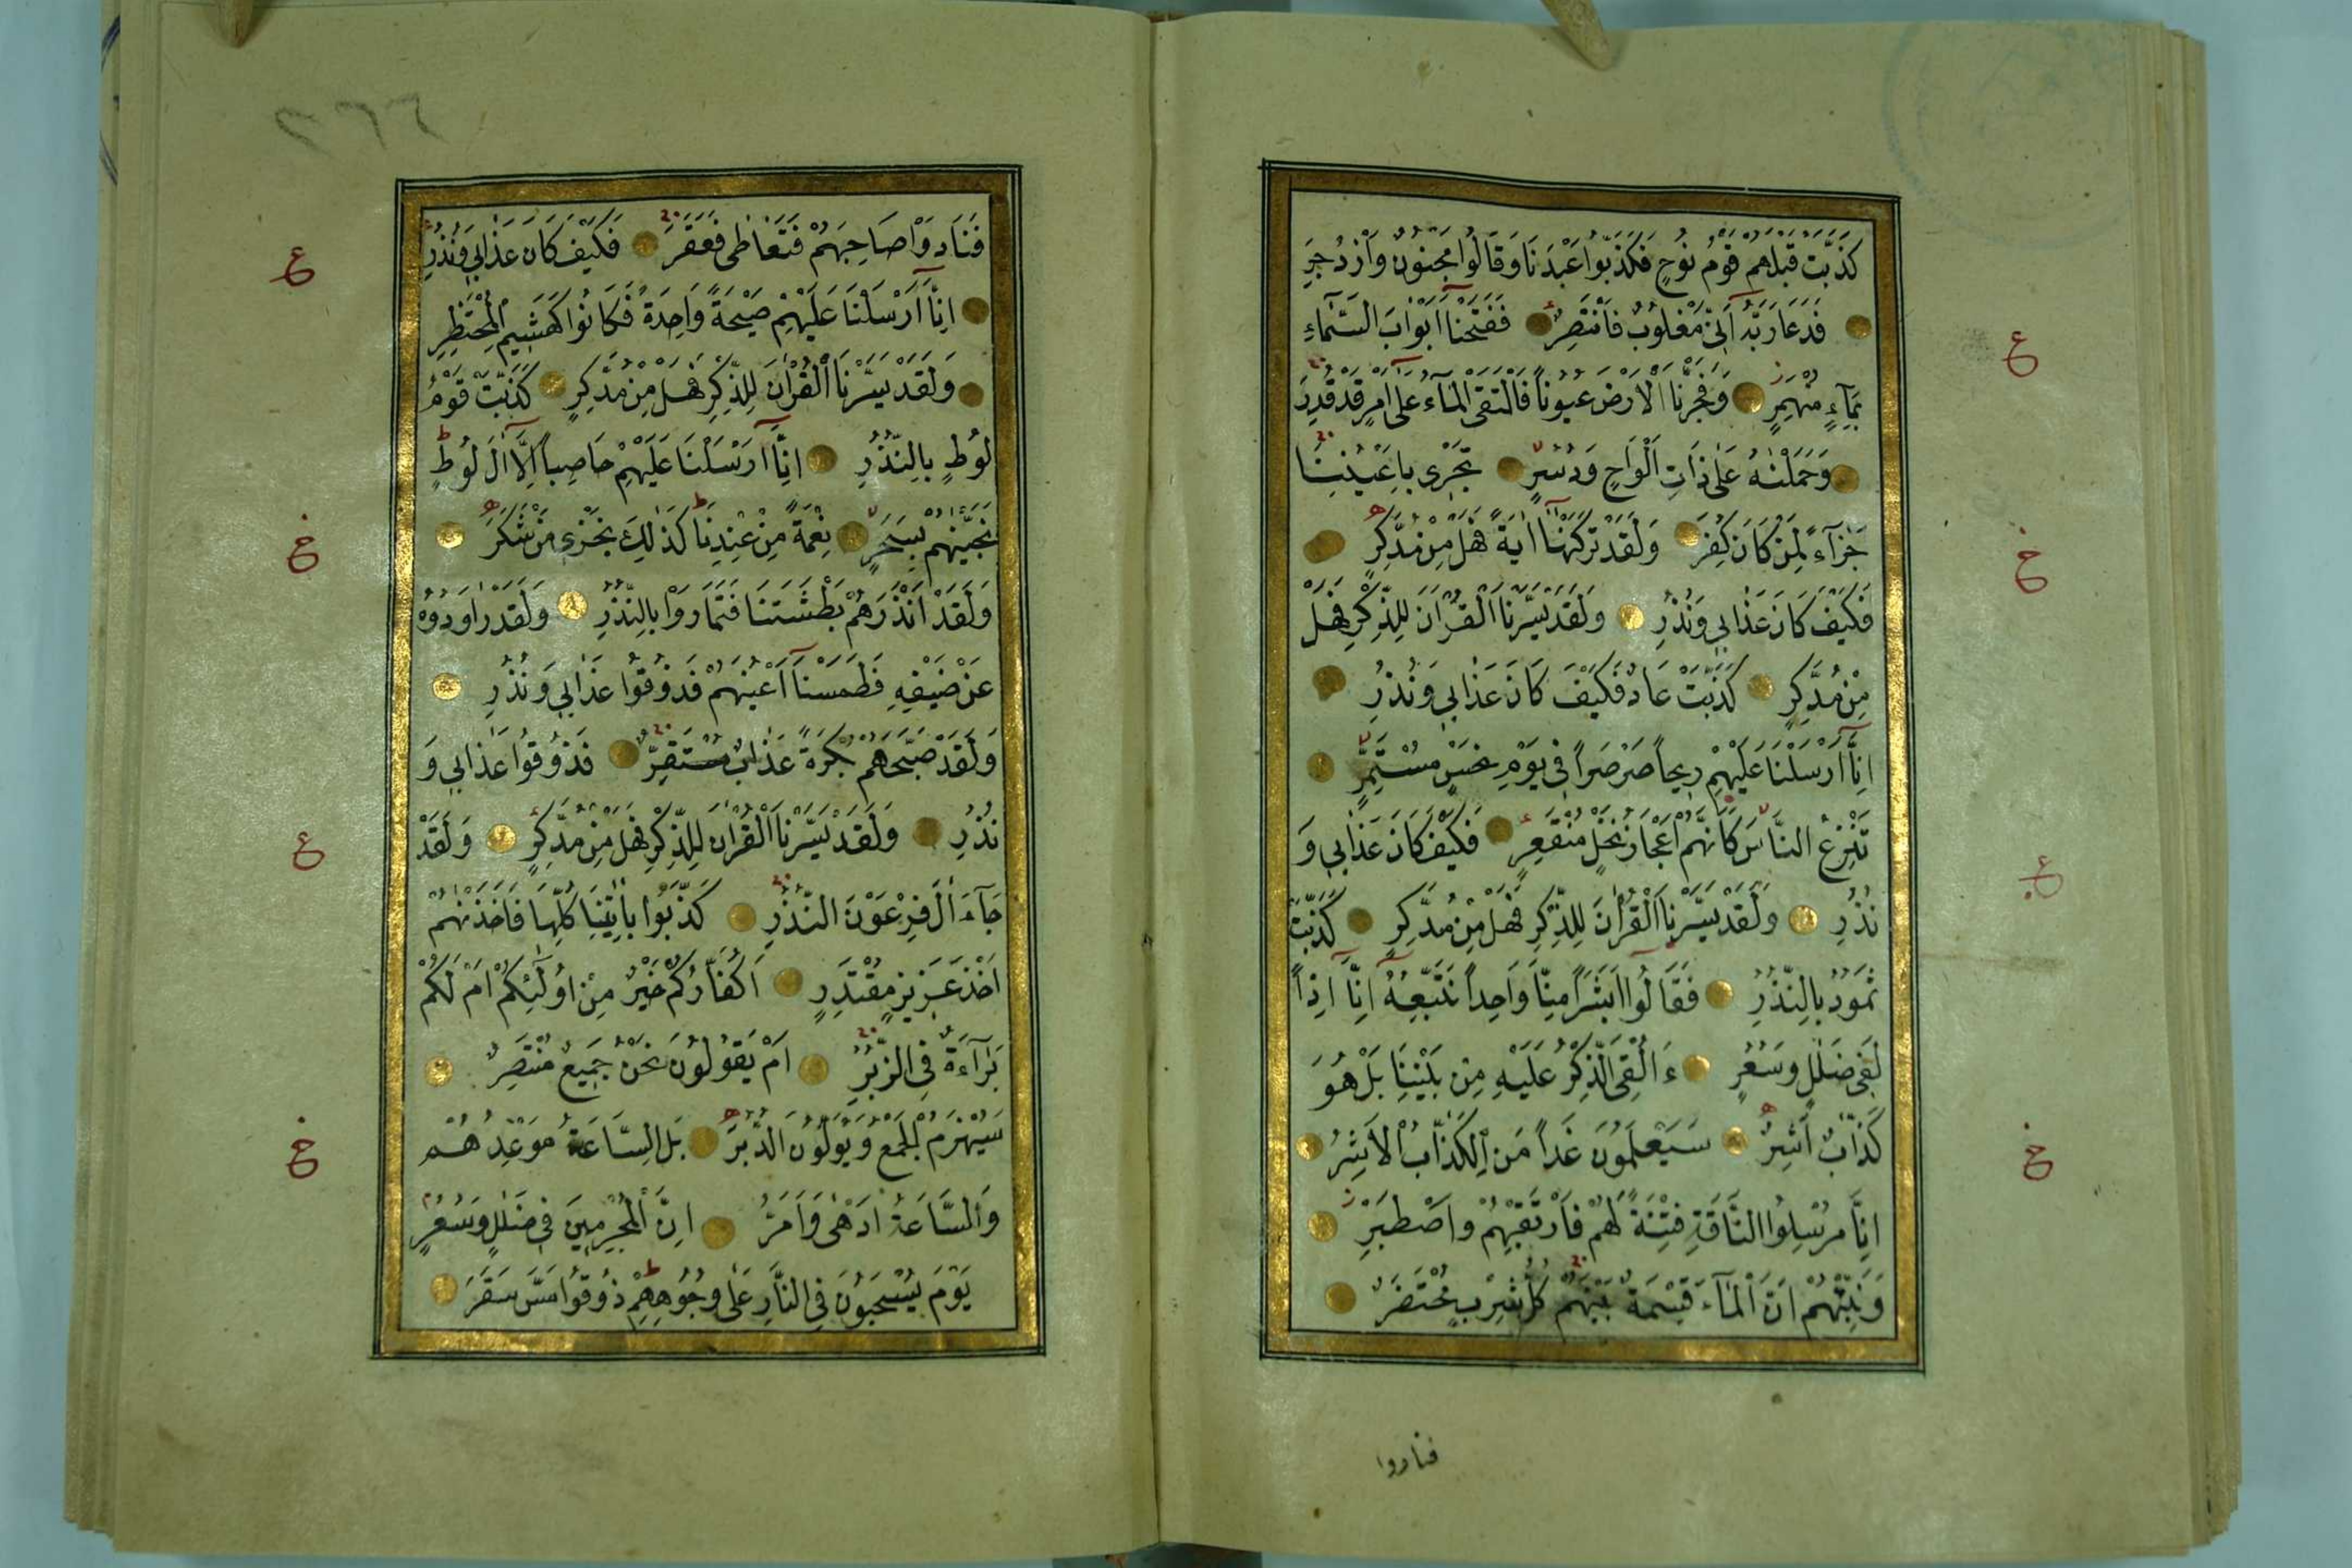 كَذَّبَتْ قَبْلَهُمْ قَوْمُ نُوحٍ فَكَذَّبُوا عَبْدَنَا وَقَالُوا مَجْنُونٌ وَازْدُجِرَ
فَدَعَا رَبَّهُ أَنِّي مَغْلُوبٌ فَانْتَصِرْ فَفَتَحْنَا أَبْوَابَ السَّمَاءِ
بِمَاءٍ مُنْهَمِرٍ وَفَجَّرْنَا الْأَرْضَ عُيُونًا فَالْتَقَى الْمَاءُ عَلَى أَمْرٍ قَدْ قُدِرَ
وَحَمَلْنٰهُ عَلَى ذَاتِ أَلْوَاحٍ وَدُسُرٍ تَجْرِي بِأَعْيُنِنَا
جَزَاءً لِمَنْ كَانَ كُفِرَ وَلَقَدْ تَرَكْنٰهَا آيَةً فَهَلْ مِنْ مُدَّكِرٍ
فَكَيْفَ كَانَ عَذَابِي وَنُذُرِ وَلَقَدْ يَسَّرْنَا الْقُرْاٰنَ لِلذِّكْرِ فَهَلْ
مِنْ مُدَّكِرٍ كَذَّبَتْ عَادٌ فَكَيْفَ كَانَ عَذَابِي وَنُذُرِ
اِنَّا أَرْسَلْنَا عَلَيْهِمْ رِيحًا صَرْصَرًا فِي يَوْمِ نَحْسٍ مُسْتَمِرٍّ
تَنْزِعُ النَّاسَ كَأَنَّهُمْ أَعْجَازُ نَخْلٍ مُنْقَعِرٍ فَكَيْفَ كَانَ عَذَابِي وَ
نُذُرِ وَلَقَدْ يَسَّرْنَا الْقُرْاٰنَ لِلذِّكْرِ فَهَلْ مِنْ مُدَّكِرٍ كَذَّبَتْ
ثَمُودُ بِالنُّذُرِ فَقَالُوا أَبَشَرًا مِنَّا وَاحِدًا نَتَّبِعُهُ اِنَّا اِذًا
لَفِي ضَلٰلٍ وَسُعُرٍ ءَاُلْقِيَ الذِّكْرُ عَلَيْهِ مِنْ بَيْنِنَا بَلْ هُوَ
كَذَّابٌ أَشِرٌ سَيَعْلَمُونَ غَدًا مَنِ الْكَذَّابُ الْأَشِرُ
اِنَّا مُرْسِلُوا النَّاقَةِ فِتْنَةً لَهُمْ فَارْتَقِبْهُمْ وَاصْطَبِرْ
وَنَبِّئْهُمْ اَنَّ الْمَاءَ قِسْمَةٌ بَيْنَهُمْ كُلُّ شِرْبٍ مُحْتَضَرٌ
فنادوا
ع
خ
ع
خ
٢٦٦
فَنَادَوْا صَاحِبَهُمْ فَتَعَاطٰى فَعَقَرَ فَكَيْفَ كَانَ عَذَابِي وَنُذُرِ
اِنَّا أَرْسَلْنَا عَلَيْهِمْ صَيْحَةً وَاحِدَةً فَكَانُوا كَهَشِيمِ الْمُحْتَظِرِ
وَلَقَدْ يَسَّرْنَا الْقُرْاٰنَ لِلذِّكْرِ فَهَلْ مِنْ مُدَّكِرٍ كَذَّبَتْ قَوْمُ
لُوطٍ بِالنُّذُرِ اِنَّا أَرْسَلْنَا عَلَيْهِمْ حَاصِبًا اِلَّا اٰلَ لُوطٍ
نَجَّيْنٰهُمْ بِسَحَرٍ نِعْمَةً مِنْ عِنْدِنَا كَذٰلِكَ نَجْزِي مَنْ شَكَرَ
وَلَقَدْ اَنْذَرَهُمْ بَطْشَتَنَا فَتَمَارَوْا بِالنُّذُرِ وَلَقَدْ رَاوَدُوهُ
عَنْ ضَيْفِهِ فَطَمَسْنَا أَعْيُنَهُمْ فَذُوقُوا عَذَابِي وَنُذُرِ
وَلَقَدْ صَبَّحَهُمْ بُكْرَةً عَذَابٌ مُسْتَقِرٌّ فَذُوقُوا عَذَابِي وَ
نُذُرِ وَلَقَدْ يَسَّرْنَا الْقُرْاٰنَ لِلذِّكْرِ فَهَلْ مِنْ مُدَّكِرٍ وَلَقَدْ
جَاءَ اٰلَ فِرْعَوْنَ النُّذُرُ كَذَّبُوا بِاٰيٰتِنَا كُلِّهَا فَاَخَذْنٰهُمْ
اَخْذَ عَزِيزٍ مُقْتَدِرٍ اَكُفَّارُكُمْ خَيْرٌ مِنْ اُولٰئِكُمْ اَمْ لَكُمْ
بَرَاءَةٌ فِي الزُّبُرِ اَمْ يَقُولُونَ نَحْنُ جَمِيعٌ مُنْتَصِرٌ
سَيُهْزَمُ الْجَمْعُ وَيُوَلُّونَ الدُّبُرَ بَلِ السَّاعَةُ مَوْعِدُهُمْ
وَالسَّاعَةُ اَدْهٰى وَاَمَرُّ اِنَّ الْمُجْرِمِينَ فِي ضَلٰلٍ وَسُعُرٍ
يَوْمَ يُسْحَبُونَ فِي النَّارِ عَلٰى وُجُوهِهِمْ ذُوقُوا مَسَّ سَقَرَ
ع
خ
ع
خ